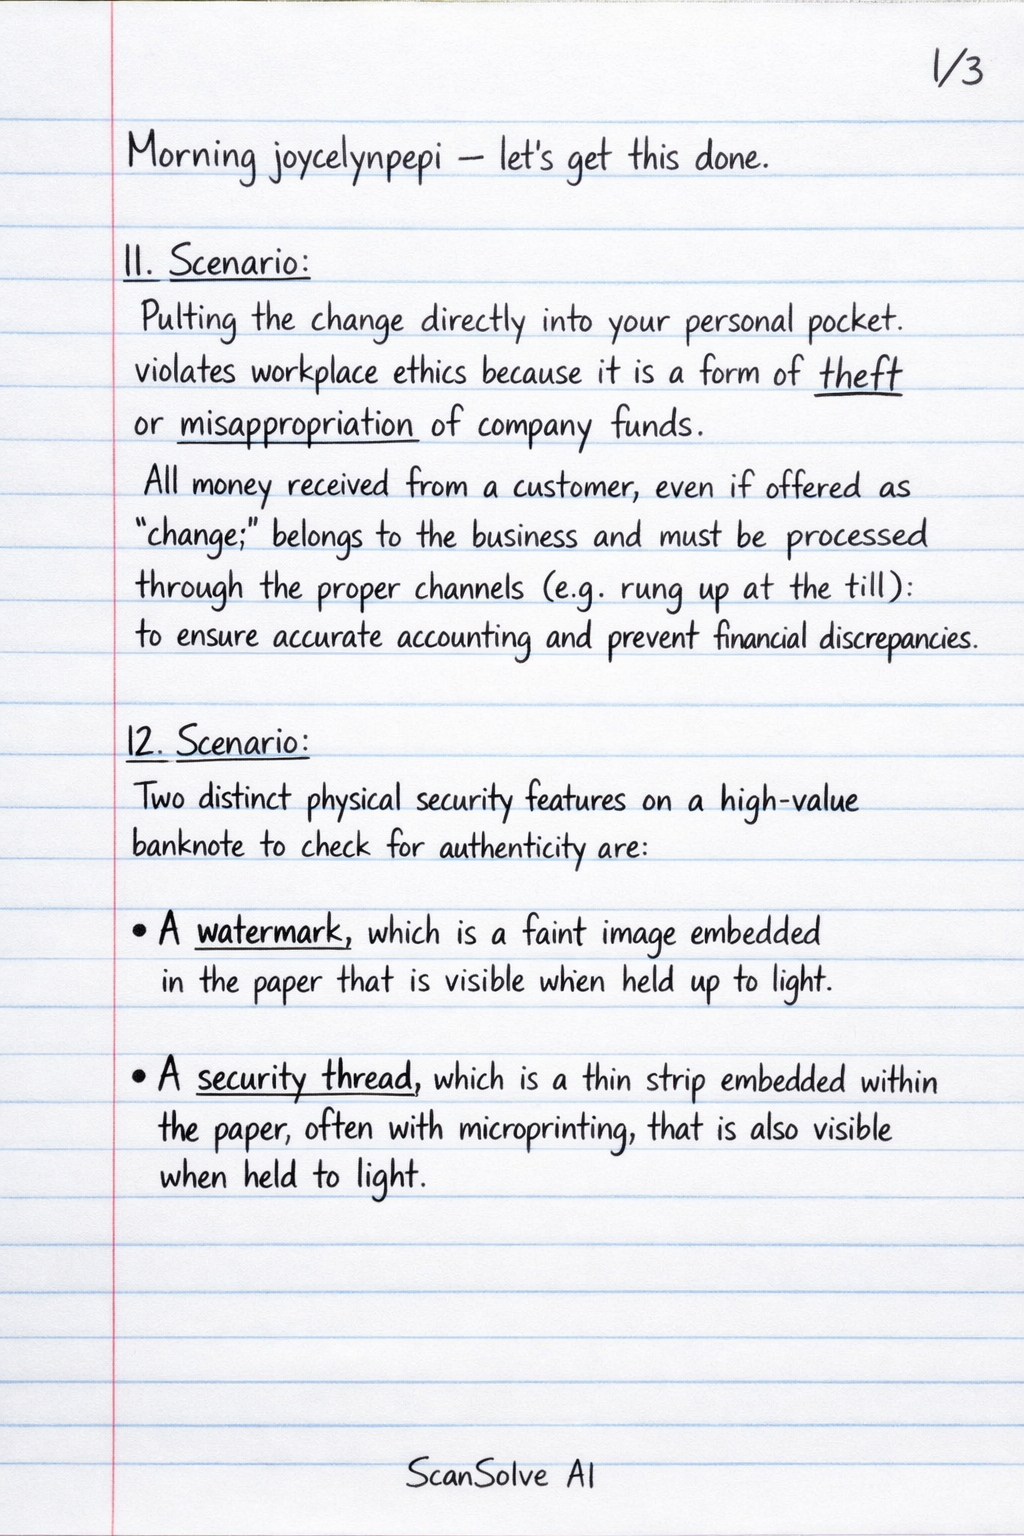 1/3
Morning joycelynpepi — let's get this done.
11. Scenario:
Pulting the change directly into your personal pocket.
violates workplace ethics because it is a form of theft
or misappropriation of company funds.
All money received from a customer, even if offered as
"change;" belongs to the business and must be processed
through the proper channels (e.g. rung up at the till):
to ensure accurate accounting and prevent financial discrepancies.
12. Scenario:
Two distinct physical security features on a high-value
banknote to check for authenticity are:
• A watermark, which is a faint image embedded
in the paper that is visible when held up to light.
• A security thread, which is a thin strip embedded within
the paper, often with microprinting, that is also visible
when held to light.
ScanSolve AI